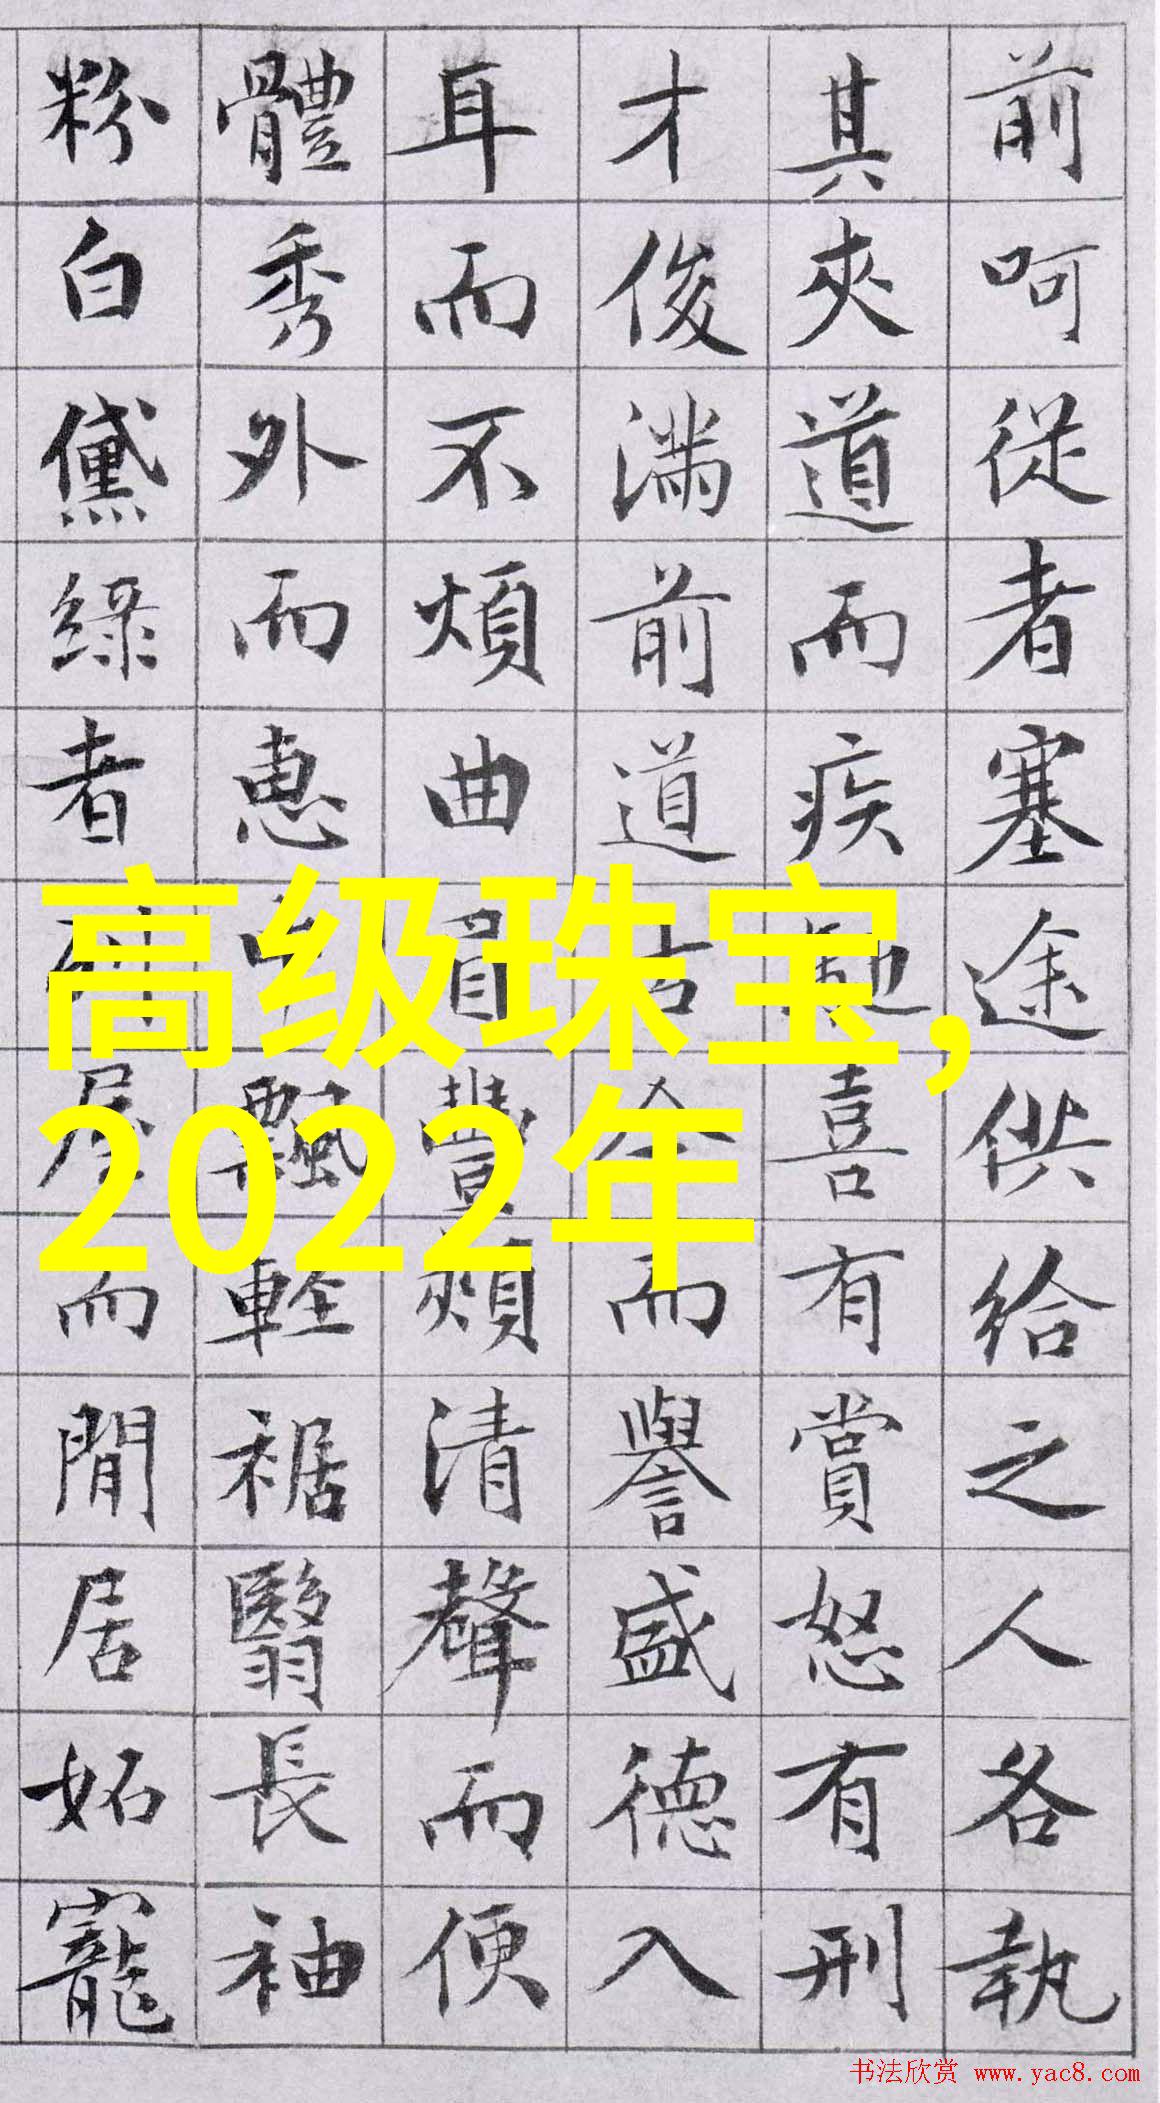 前呵從者塞途供給之人各執
其夾道而疾馳喜有賞怒有刑
才俊滿前道古今而譽盛德入
耳而不煩曲眉豐頰清聲而便
體秀外而惠中飄輕裾翳長袖
粉白黛綠者列屋而閒居妬寵
高级珠宝,
2022年
书法欣赏 www.yac8.com